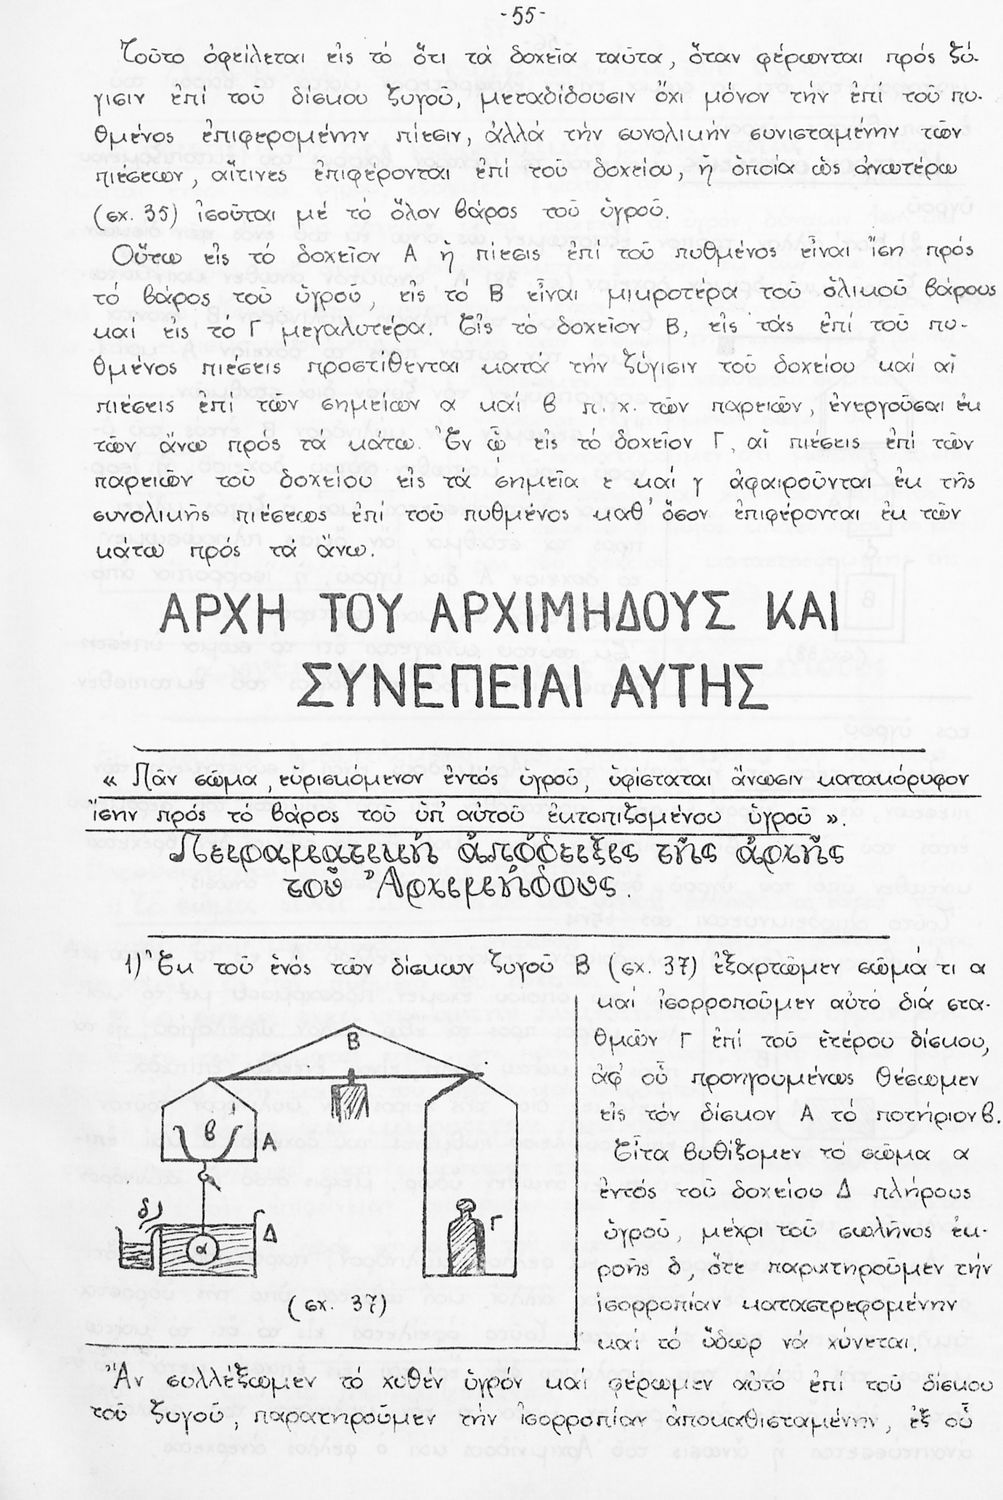 -55-
Τοῦτο ὀφείλεται εἰς τό ὅτι τά δοχεῖα ταῦτα, ὅταν φέρωνται πρός ζύ-
γισιν ἐπί τοῦ δίσκου ζυγοῦ, μεταδίδουσιν ὄχι μόνον τήν ἐπί τοῦ πυ-
θμένος ἐπιφερομένην πίεσιν, ἀλλά τήν συνολικήν συνισταμένην τῶν
πιέσεων, αἵτινες ἐπιφέρονται ἐπί τοῦ δοχείου, ἡ ὁποία ὡς ἀνωτέρω
(σχ. 35) ἰσοῦται μέ τό ὅλον βάρος τοῦ ὑγροῦ.
Οὕτω εἰς τό δοχεῖον Α ἡ πίεσις ἐπί τοῦ πυθμένος εἶναι ἴση πρός
τό βάρος τοῦ ὑγροῦ, εἰς τό Β εἶναι μικροτέρα τοῦ ὁλικοῦ βάρους
καί εἰς τό Γ μεγαλυτέρα. Εἰς τό δοχεῖον Β, εἰς τάς ἐπί τοῦ πυ-
θμένος πιέσεις προστίθενται κατά τήν ζύγισιν τοῦ δοχείου καί αἱ
πιέσεις ἐπί τῶν σημείων α καί β π.χ. τῶν παρειῶν, ἐνεργοῦσαι ἐκ
τῶν ἄνω πρός τά κάτω. Ἐν ᾧ εἰς τό δοχεῖον Γ, αἱ πιέσεις ἐπί τῶν
παρειῶν τοῦ δοχείου εἰς τά σημεῖα ε καί γ ἀφαιροῦνται ἐκ τῆς
συνολικῆς πιέσεως ἐπί τοῦ πυθμένος καθ' ὅσον ἐπιφέρονται ἐκ τῶν
κάτω πρός τά ἄνω.
ΑΡΧΗ ΤΟΥ ΑΡΧΙΜΗΔΟΥΣ ΚΑΙ
ΣΥΝΕΠΕΙΑΙ ΑΥΤΗΣ
« Πᾶν σῶμα, εὑρισκόμενον ἐντός ὑγροῦ, ὑφίσταται ἄνωσιν κατακόρυφον
ἴσην πρός τό βάρος τοῦ ὑπ' αὐτοῦ ἐκτοπιζομένου ὑγροῦ ».
Πειραματική ἀπόδειξις τῆς ἀρχῆς
τοῦ Ἀρχιμήδους.
1) Ἐκ τοῦ ἑνός τῶν δίσκων ζυγοῦ Β (σχ. 37) ἐξαρτῶμεν σῶμά τι α
καί ἰσορροποῦμεν αὐτό διά στα-
θμῶν Γ ἐπί τοῦ ἑτέρου δίσκου,
ἀφ' οὗ προηγουμένως θέσωμεν
εἰς τόν δίσκον Α τό ποτήριον β.
Εἶτα βυθίζομεν τό σῶμα α
ἐντός τοῦ δοχείου Δ πλήρους
ὑγροῦ, μέχρι τοῦ σωλῆνος ἐκ-
ροῆς δ, ὅτε παρατηροῦμεν τήν
ἰσορροπίαν καταστρεφομένην
καί τό ὕδωρ νά χύνεται.
Β
β
Α
δ
α
Δ
Γ
(σχ. 37)
Ἄν συλλέξωμεν τό χυθέν ὑγρόν καί φέρωμεν αὐτό ἐπί τοῦ δίσκου
τοῦ ζυγοῦ, παρατηροῦμεν τήν ἰσορροπίαν ἀποκαθισταμένην, ἐξ οὗ